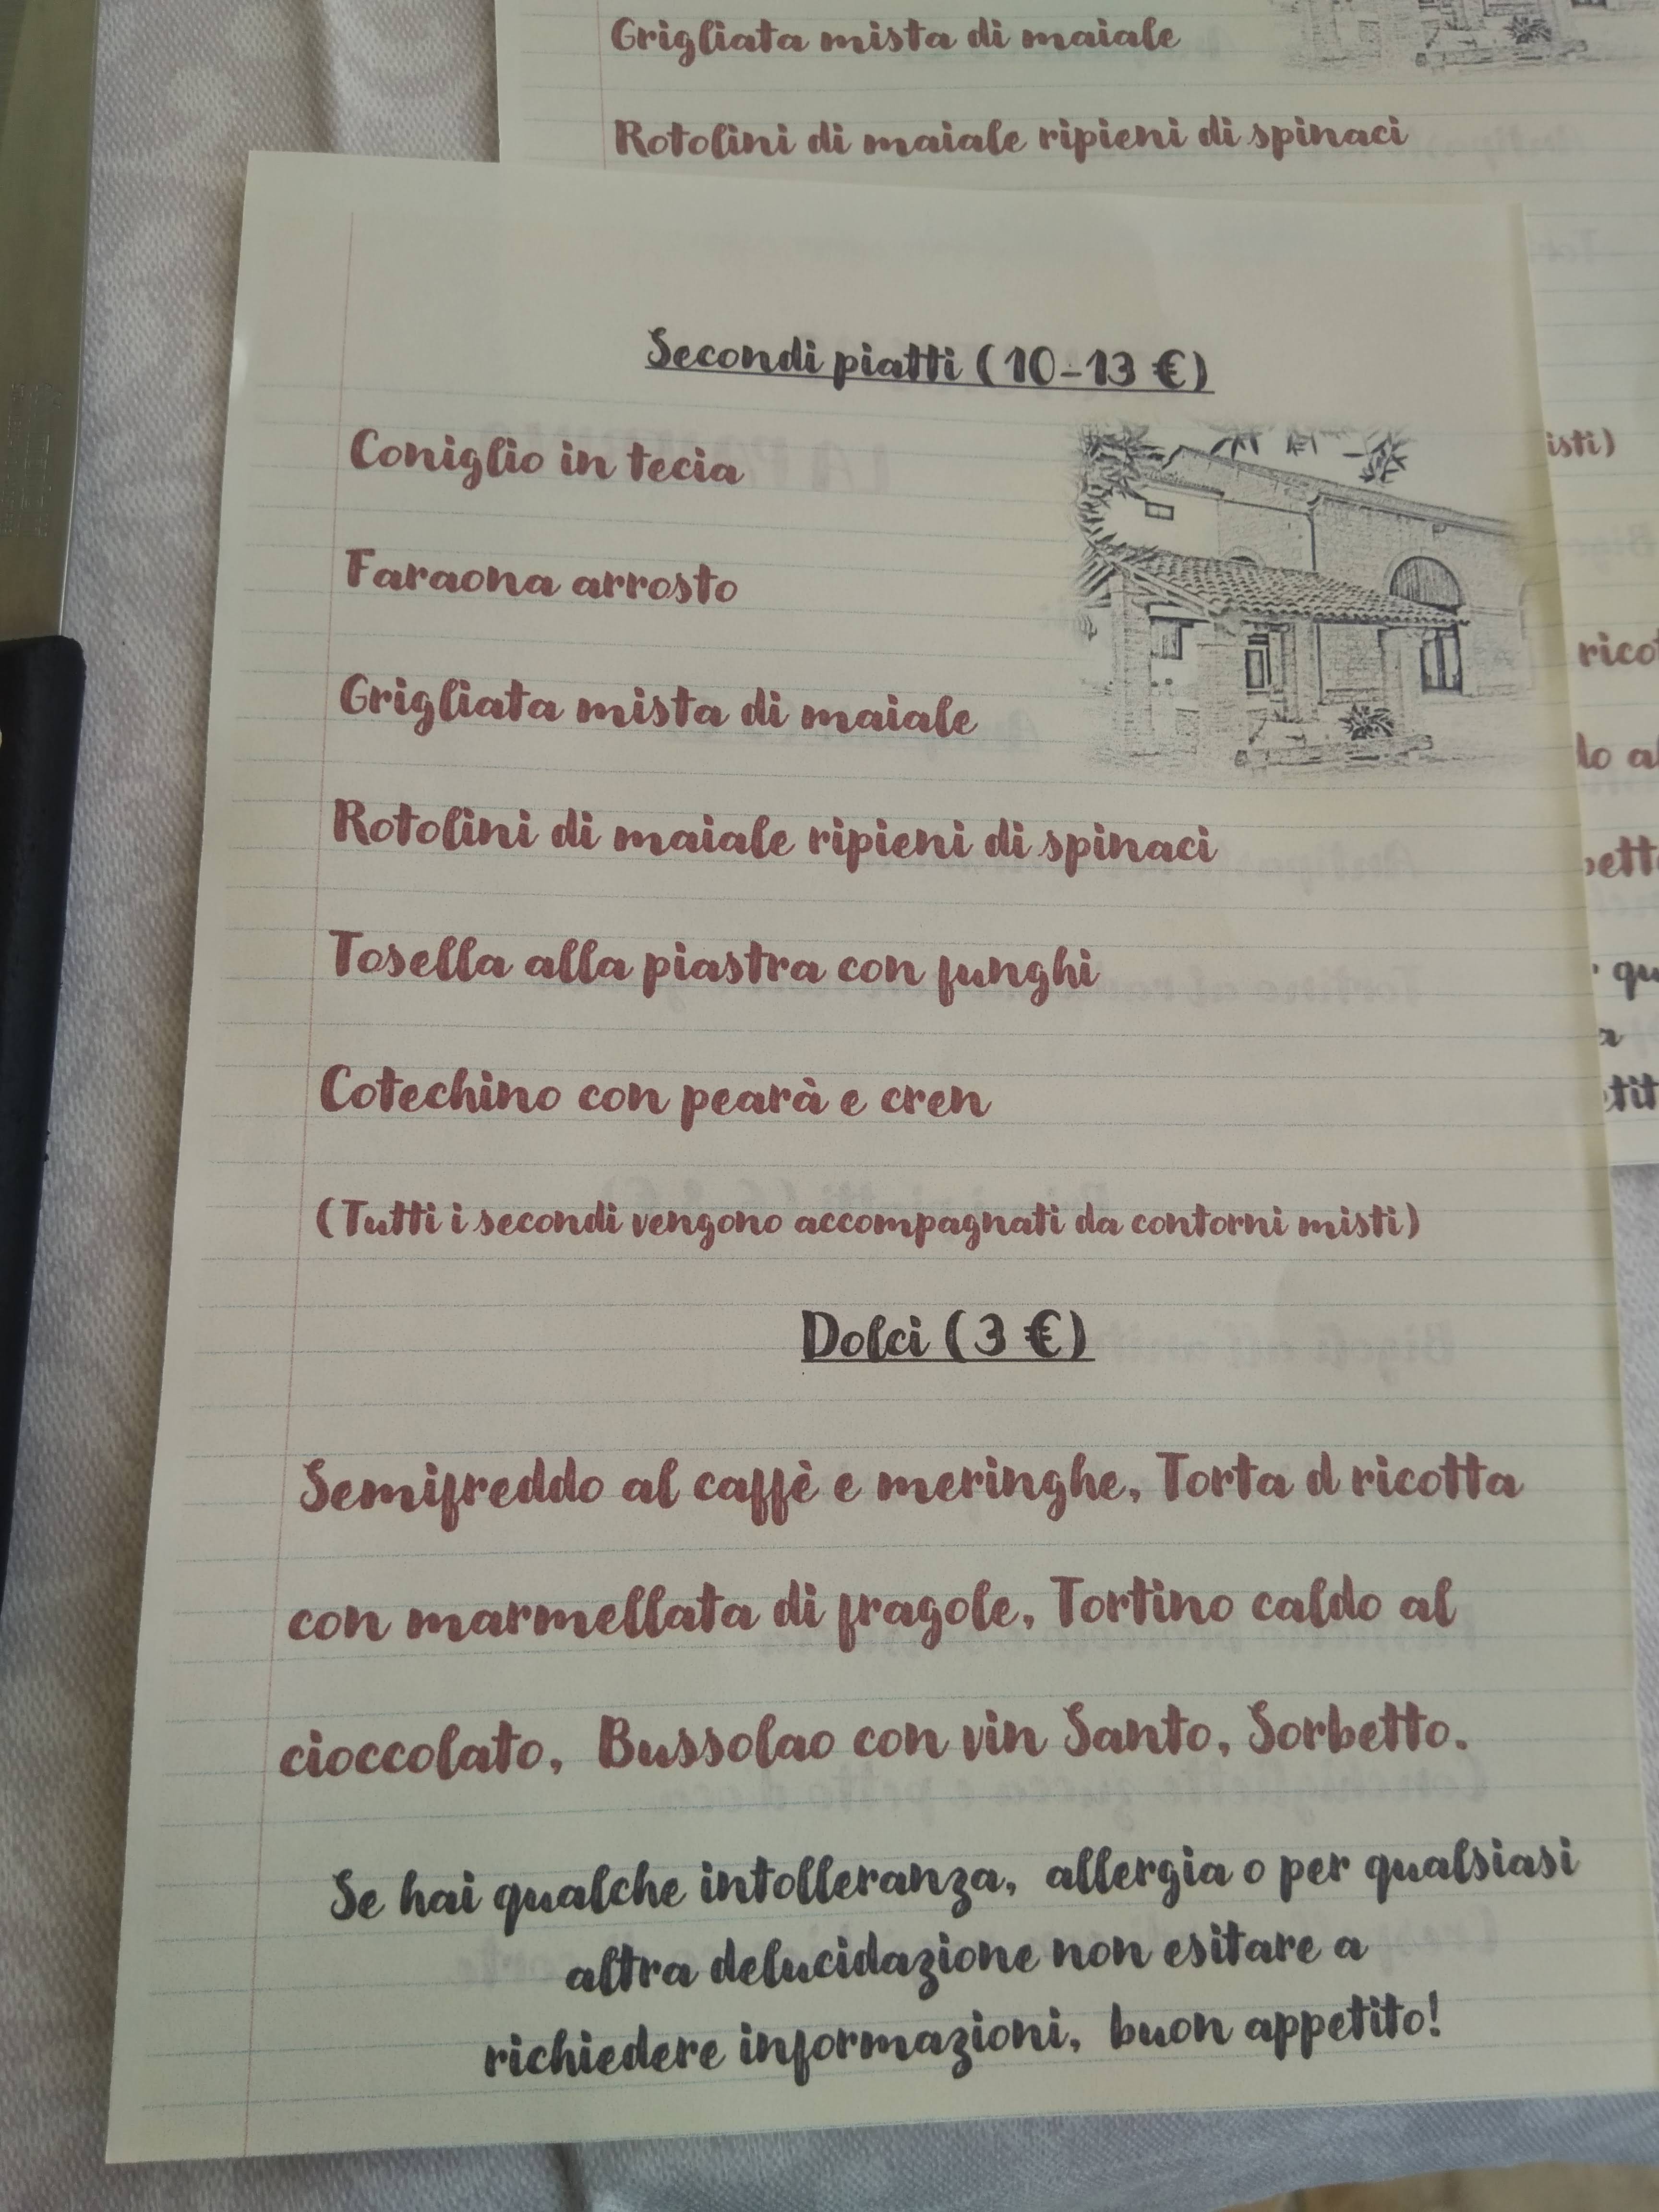 Grigliata mista di maiale
Rotolini di maiale ripieni di spinaci
Secondi piatti (10-13 €)
Coniglio in tecia
Faraona arrosto
Grigliata mista di maiale
Rotolini di maiale ripieni di spinaci
Tosella alla piastra con funghi
Cotechino con pearà e cren
(Tutti i secondi vengono accompagnati da contorni misti)
Dolci (3 €)
Semifreddo al caffè e meringhe, Torta d ricotta
con marmellata di fragole, Tortino caldo al
cioccolato, Bussolao con vin Santo, Sorbetto.
Se hai qualche intolleranza, allergia o per qualsiasi
altra delucidazione non esitare a
richiedere informazioni, buon appetito!